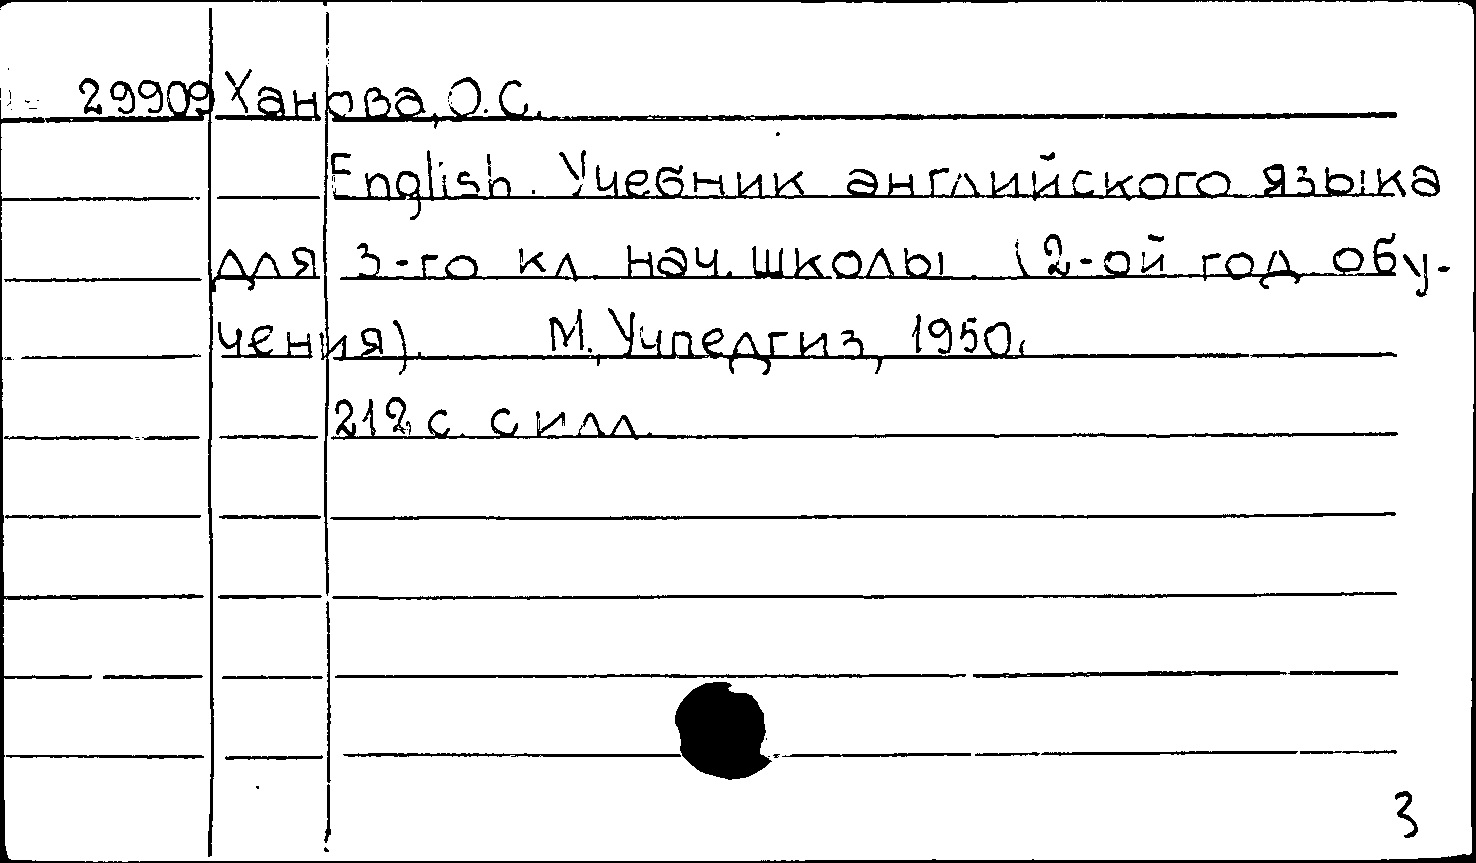 29909 Ханова, О.С.
English. Учебник английского языка
для 3-го кл. нач. школы. (2-ой год обу-
чения). М., Учпедгиз, 1950.
212 с. с илл.
3